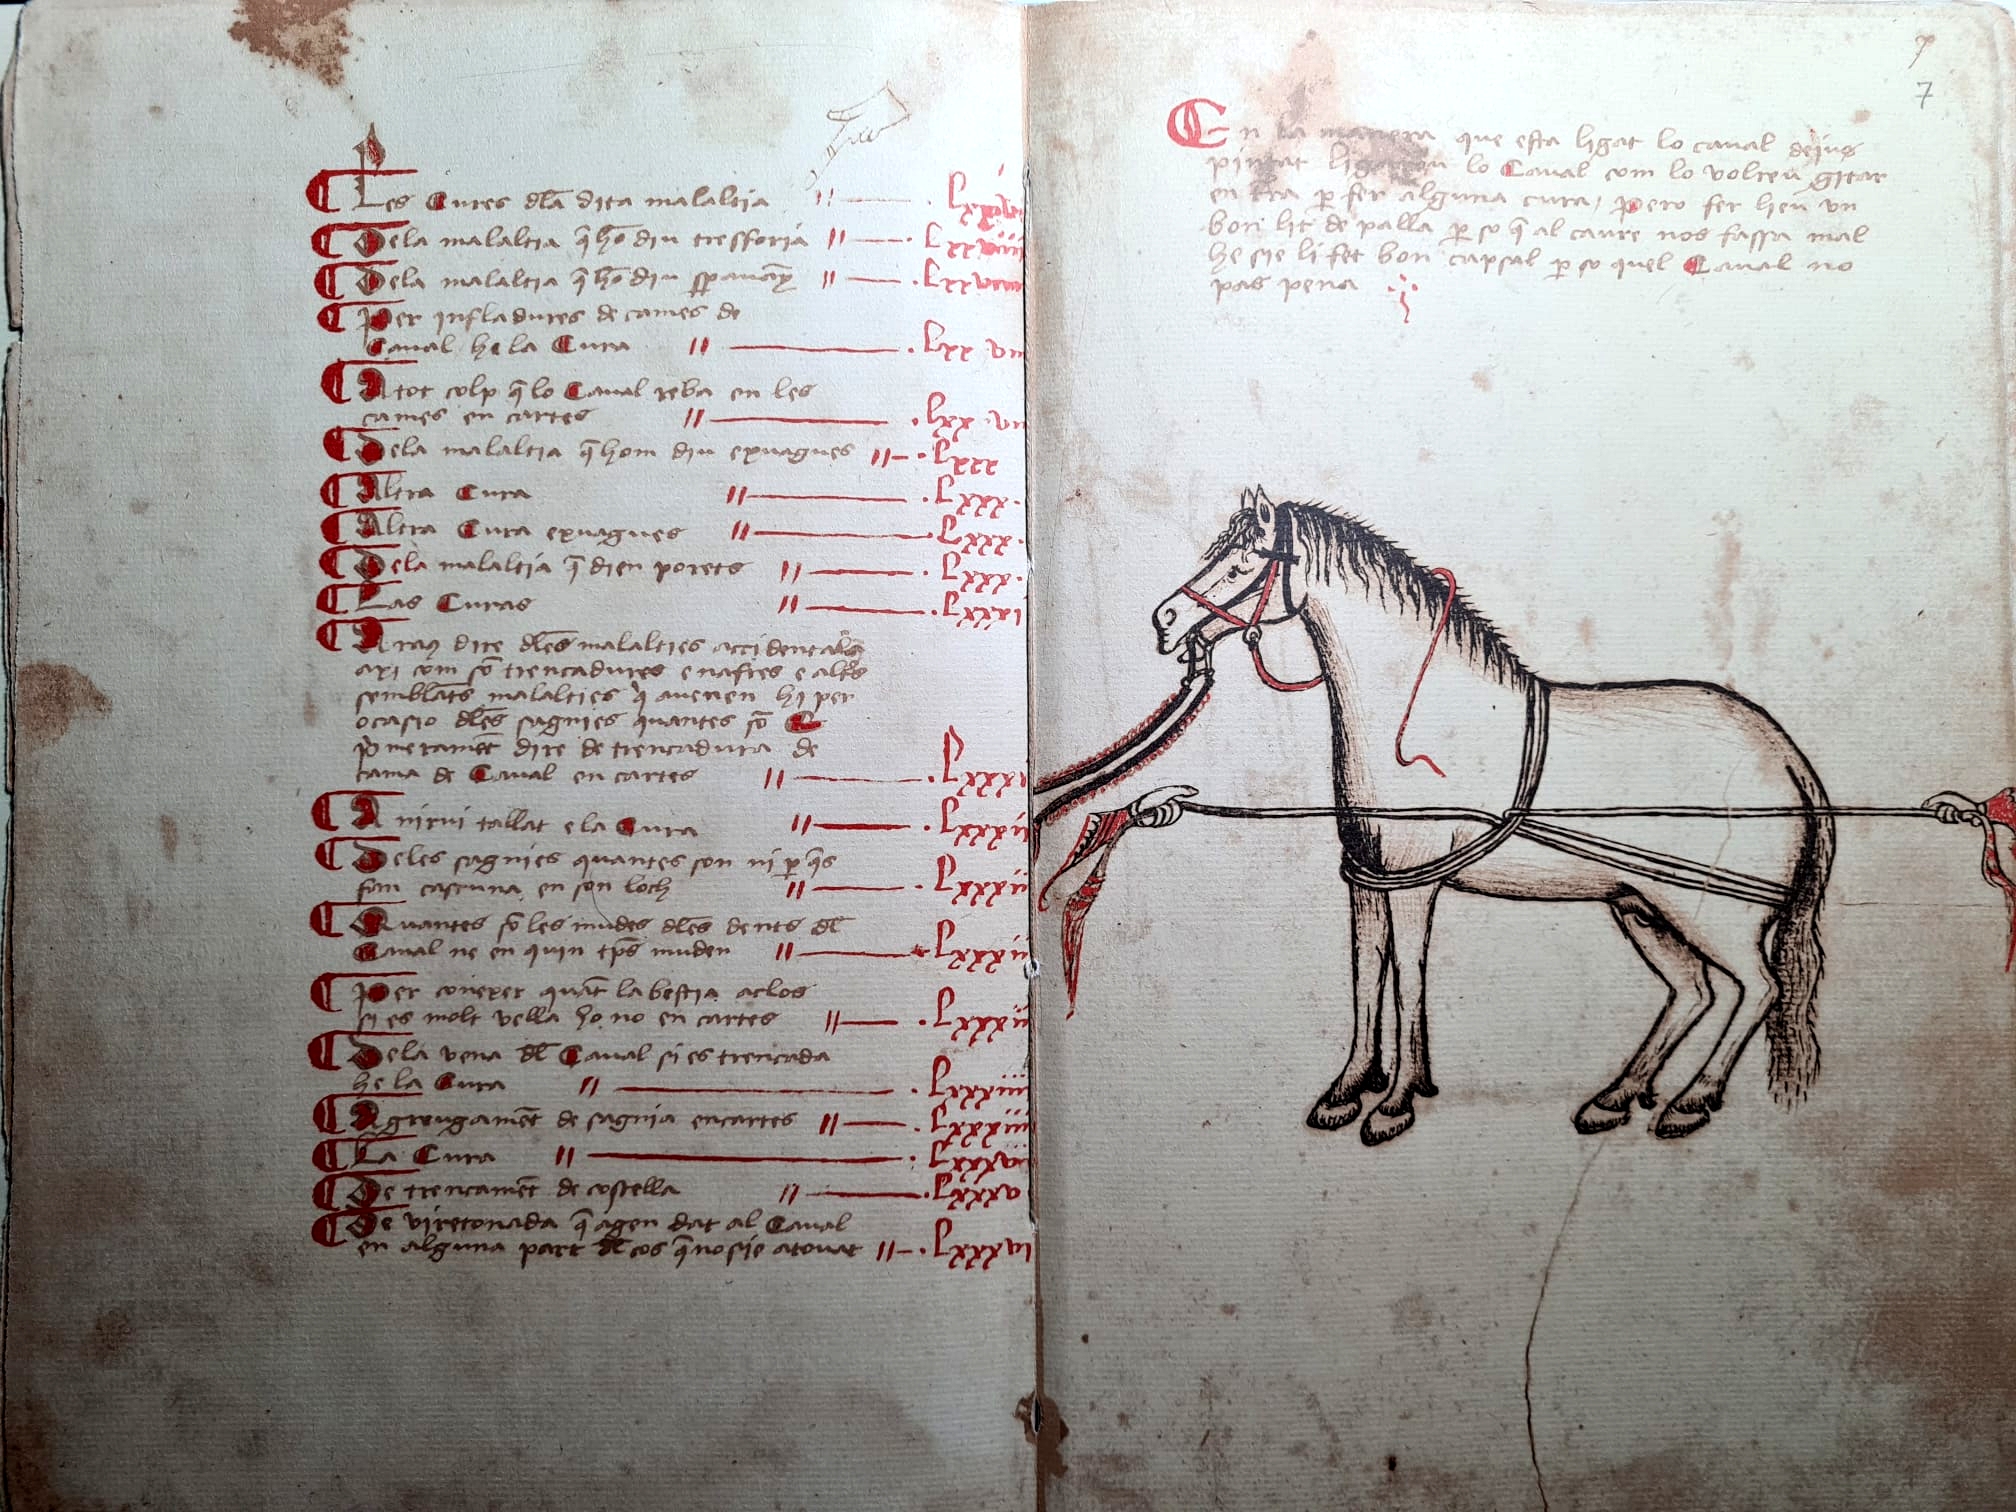 Les Cures dla dita malaltia // Lxxvi
Dela malaltia q̄ hō diu tresforia // Lxxviii
Dela malaltia q̄ hō diu // Lxxviii
Per infladures de cames de
Caual he la Cura // Lxx vii
A tot colp q̄ lo Caual reba en les
cames en cartes // lxx vii
Dela malaltia q̄ hom diu exuagues // Lxxx
Altra Cura // Lxxx
Altra Cura exuagues // Lxxx
Dela malaltia q̄ dien porets // Lxxx
Las Curas // Lxxxi
Araq dire dles malalties accidentals
axi com sō trencadures e nafres e altrs
semblāts malalties q̄ auenen hi per
ocasio dles sagnies quantes sō E
primeramēt dire de trencadura de
cama de Caual en cartes // Lxxxi
A nirui tallat e la Cura // Lxxxii
Deles sagnies quantes son ni p q̄s
fan cascuna en son loch // Lxxxii
Quantes sō les mudes dles dents dl
Caual ne en quin tps muden // Lxxxii
Per conexer quāt la bestia a clos
si es molt vella ho no en cartes // Lxxxii
Dela vena dl Caual si es trencada
he la Cura // Lxxxiiii
Agreugamēt de sagnia en cartes // Lxxxiiii
La Cura // Lxxxvii
De trencamēt de costella // Lxxxv
De viretonada q̄ agen dat al Caual
en alguna part dl cos q̄ no sie atouat // Lxxxvi
7
En la manera que esta ligat lo caual deius
pintat ligaran lo Caual com lo volreu gitar
en tra p fer alguna cura, pero fer lieu vn
bon lit de palla p so q̄ al caure nos fassa mal
he sie li fet bon capsal p so quel Caual no
pas pena